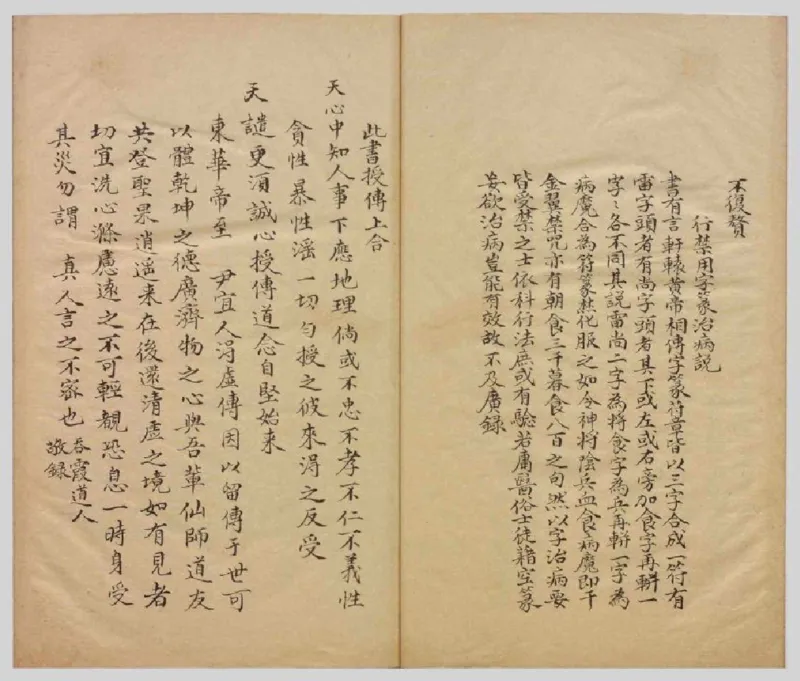 不復贅
行禁用字篆治病説
書有言軒轅黄帝相傳字篆符章皆以三字合成一符有
雷字頭者有尚字頭者其下或左或右旁加食字再輧一
字〻各不同其説雷尚二字為將食字為兵再輧一字為
病魔合為符篆焚化服之如令神將陰兵血食病魔即千
金翼禁咒亦有朝食三千暮食八百之句然以字治病要
皆受禁之士依科行法庶或有騐若庸醫俗士徒藉空篆
妄欲治病豈能有效故不及廣録
此書授傳上合
天心中知人事下應地理倘或不忠不孝不仁不義性
貪性暴性滛一切勿授之彼來淂之反受
天譴更湏誠心授傳道念自堅始来
東華帝至 尹宜人淂虛傳因以留傳于世可
以體乾坤之德廣濟物之心與吾輩仙師道友
共登聖果逍遥来在後還清虛之境如有見者
切宜洗心滌慮遠之不可輕覩恐息一時身受
其災勿謂 真人言之不宻也 吞霞道人
敬録